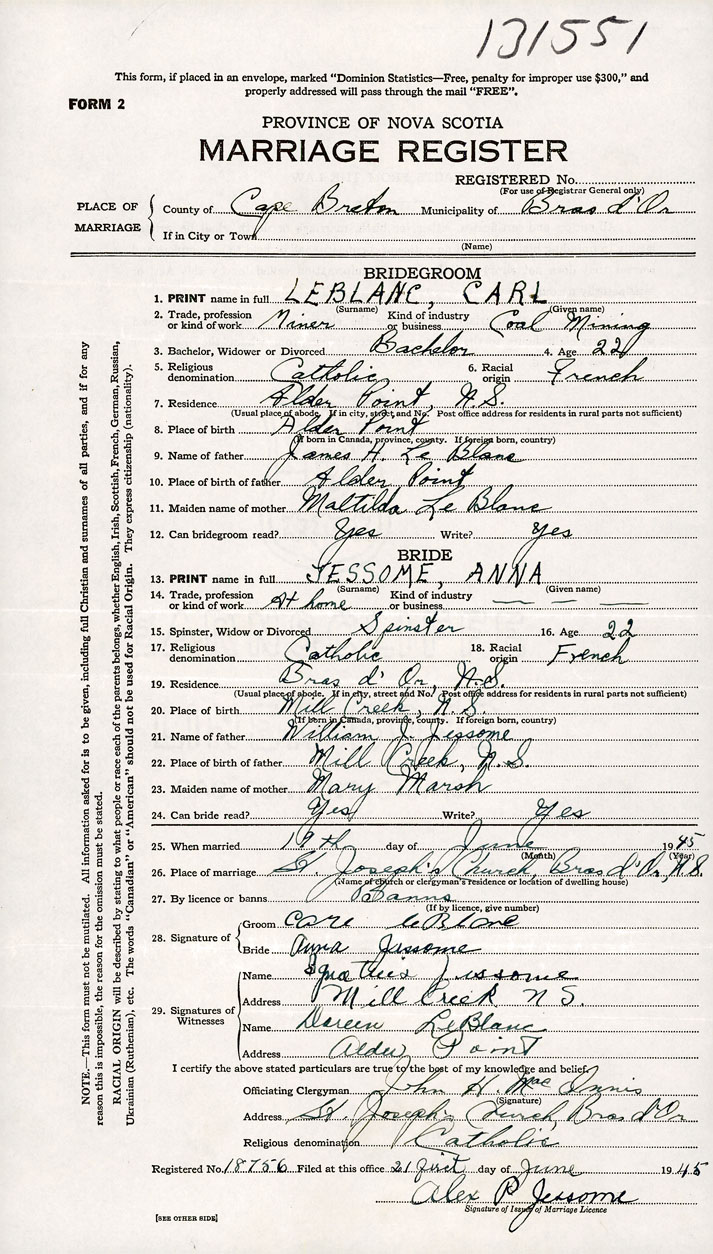 131551
This form, if placed in an envelope, marked "Dominion Statistics—Free, penalty for improper use $300," and
properly addressed will pass through the mail "FREE".
FORM 2
PROVINCE OF NOVA SCOTIA
MARRIAGE REGISTER
REGISTERED No.
(For use of Registrar General only)
PLACE OF MARRIAGE
County of Cape Breton Municipality of Bras d'Or
If in City or Town
(Name)
BRIDEGROOM
1. PRINT name in full LEBLANC, CARL
(Surname) (Given name)
2. Trade, profession or kind of work Miner Kind of industry or business Coal Mining
3. Bachelor, Widower or Divorced Bachelor 4. Age 22
5. Religious denomination Catholic 6. Racial origin French
7. Residence Alder Point, N.S.
(Usual place of abode. If in city, street and No. Post office address for residents in rural parts not sufficient)
8. Place of birth Alder Point
(If born in Canada, province, county. If foreign born, country)
9. Name of father James H. Le Blanc
10. Place of birth of father Alder Point
11. Maiden name of mother Maltilda Le Blanc
12. Can bridegroom read? Yes Write? Yes
BRIDE
13. PRINT name in full JESSOME, ANNA
(Surname) (Given name)
14. Trade, profession or kind of work At home Kind of industry or business — — —
15. Spinster, Widow or Divorced Spinster 16. Age 22
17. Religious denomination Catholic 18. Racial origin French
19. Residence Bras d'Or, N.S.
(Usual place of abode. If in city, street and No. Post office address for residents in rural parts not sufficient)
20. Place of birth Mill Creek, N.S.
(If born in Canada, province, county. If foreign born, country)
21. Name of father William J. Jessome
22. Place of birth of father Mill Creek, N.S.
23. Maiden name of mother Mary Marsh
24. Can bride read? Yes Write? Yes
25. When married 19th day of June 1945
(Month) (Year)
26. Place of marriage St. Joseph's Church, Bras d'Or, N.S.
(Name of church or clergyman's residence or location of dwelling house)
27. By licence or banns Banns
(If by licence, give number)
28. Signature of
Groom Carl LeBlanc
Bride Anna Jessome
29. Signatures of Witnesses
Name Jessome
Address Mill Creek N S.
Name Doreen LeBlanc
Address Alder Point
I certify the above stated particulars are true to the best of my knowledge and belief.
Officiating Clergyman John H. MacInnis
(Signature)
Address St. Joseph's Church, Bras d'Or
Religious denomination Catholic
Registered No. 18756 Filed at this office 21 first day of June 1945
Alex P. Jessome
Signature of Issuer of Marriage Licence
[SEE OTHER SIDE]
NOTE.—This form must not be mutilated. All information asked for is to be given, including full Christian and surnames of all parties, and if for any
reason this is impossible, the reason for the omission must be stated.
RACIAL ORIGIN will be described by stating to what people or race each of the parents belongs, whether English, Irish, Scottish, French, German, Russian,
Ukrainian (Ruthenian), etc. The words "Canadian" or "American" should not be used for Racial Origin. They express citizenship (nationality).